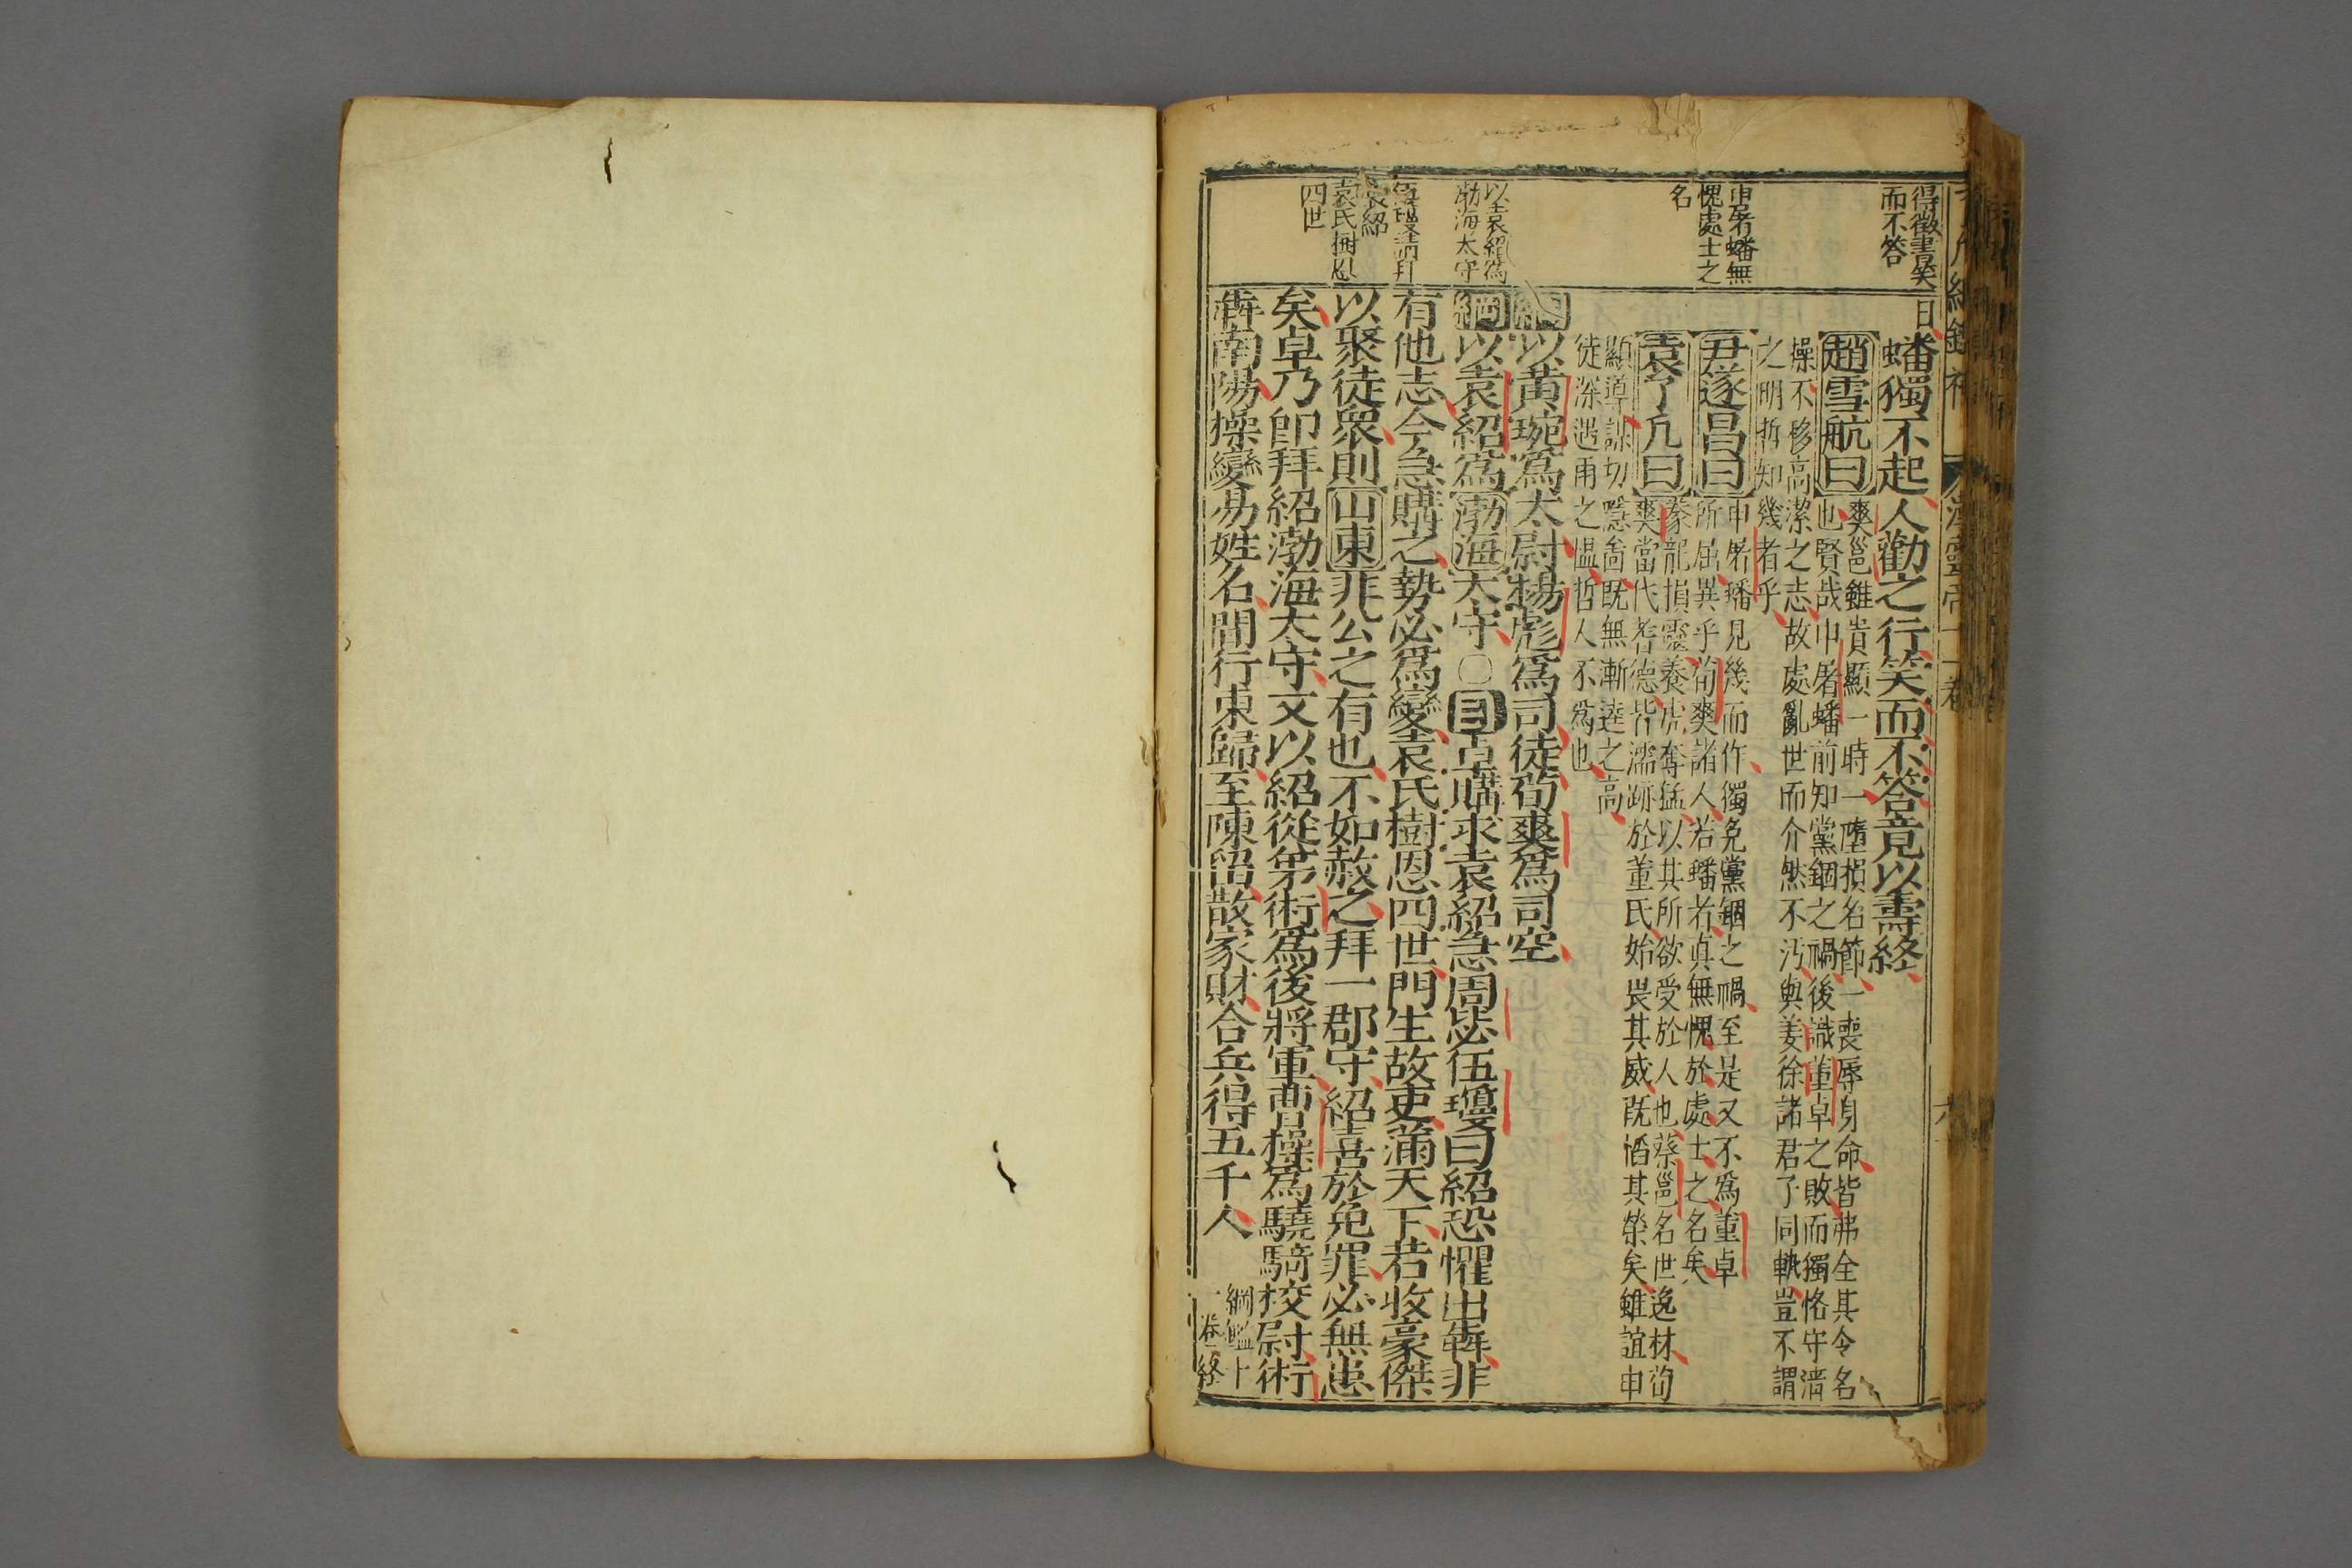 得徵書笑
而不答
申屠蟠無
愧處士之
名
以袁紹爲
渤海太守
袁紹
袁氏樹恩
四世
曰
蟠獨不起人勸之行笑而不答竟以壽終
趙雪航曰
爽邕雖貴顯一時一墮損名節一喪辱身命皆弗全其令名
也賢哉申屠蟠前知黨錮之禍後識董卓之敗而獨恪守清
操不移高潔之志故處亂世而介然不汚與姜徐諸君子同軌豈不謂
之明哲知幾者乎
尹遂昌曰
申屠蟠見幾而作獨免黨錮之禍至是又不爲董卓
所屈異乎荀爽諸人若蟠者眞無愧於處士之名矣
袁了凡曰
豢龍損靈養虎奪猛以其所欲受於人也蔡邕名世逸材荀
爽當代耆德皆濡跡於董氏始畏其威旣惛其榮矣雖誼申
顯導謀切隱耑旣無漸逵之高
徒深遇雨之愠哲人不爲也
綱以黄琬爲太尉楊彪爲司徒荀爽爲司空
綱以袁紹爲渤海太守〇目卓購求袁紹急周毖伍瓊曰紹恐懼出犇非
有他志今急購之勢必爲變袁氏樹恩四世門生故吏滿天下若收豪傑
以聚徒衆則山東非公之有也不如赦之拜一郡守紹喜於免罪必無患
矣卓乃卽拜紹渤海太守又以紹從弟術爲後將軍曹操爲驍騎校尉術
犇南陽操變易姓名間行東歸至陳留散家財合兵得五千人
綱鑑十
一卷終
漢靈帝十一卷